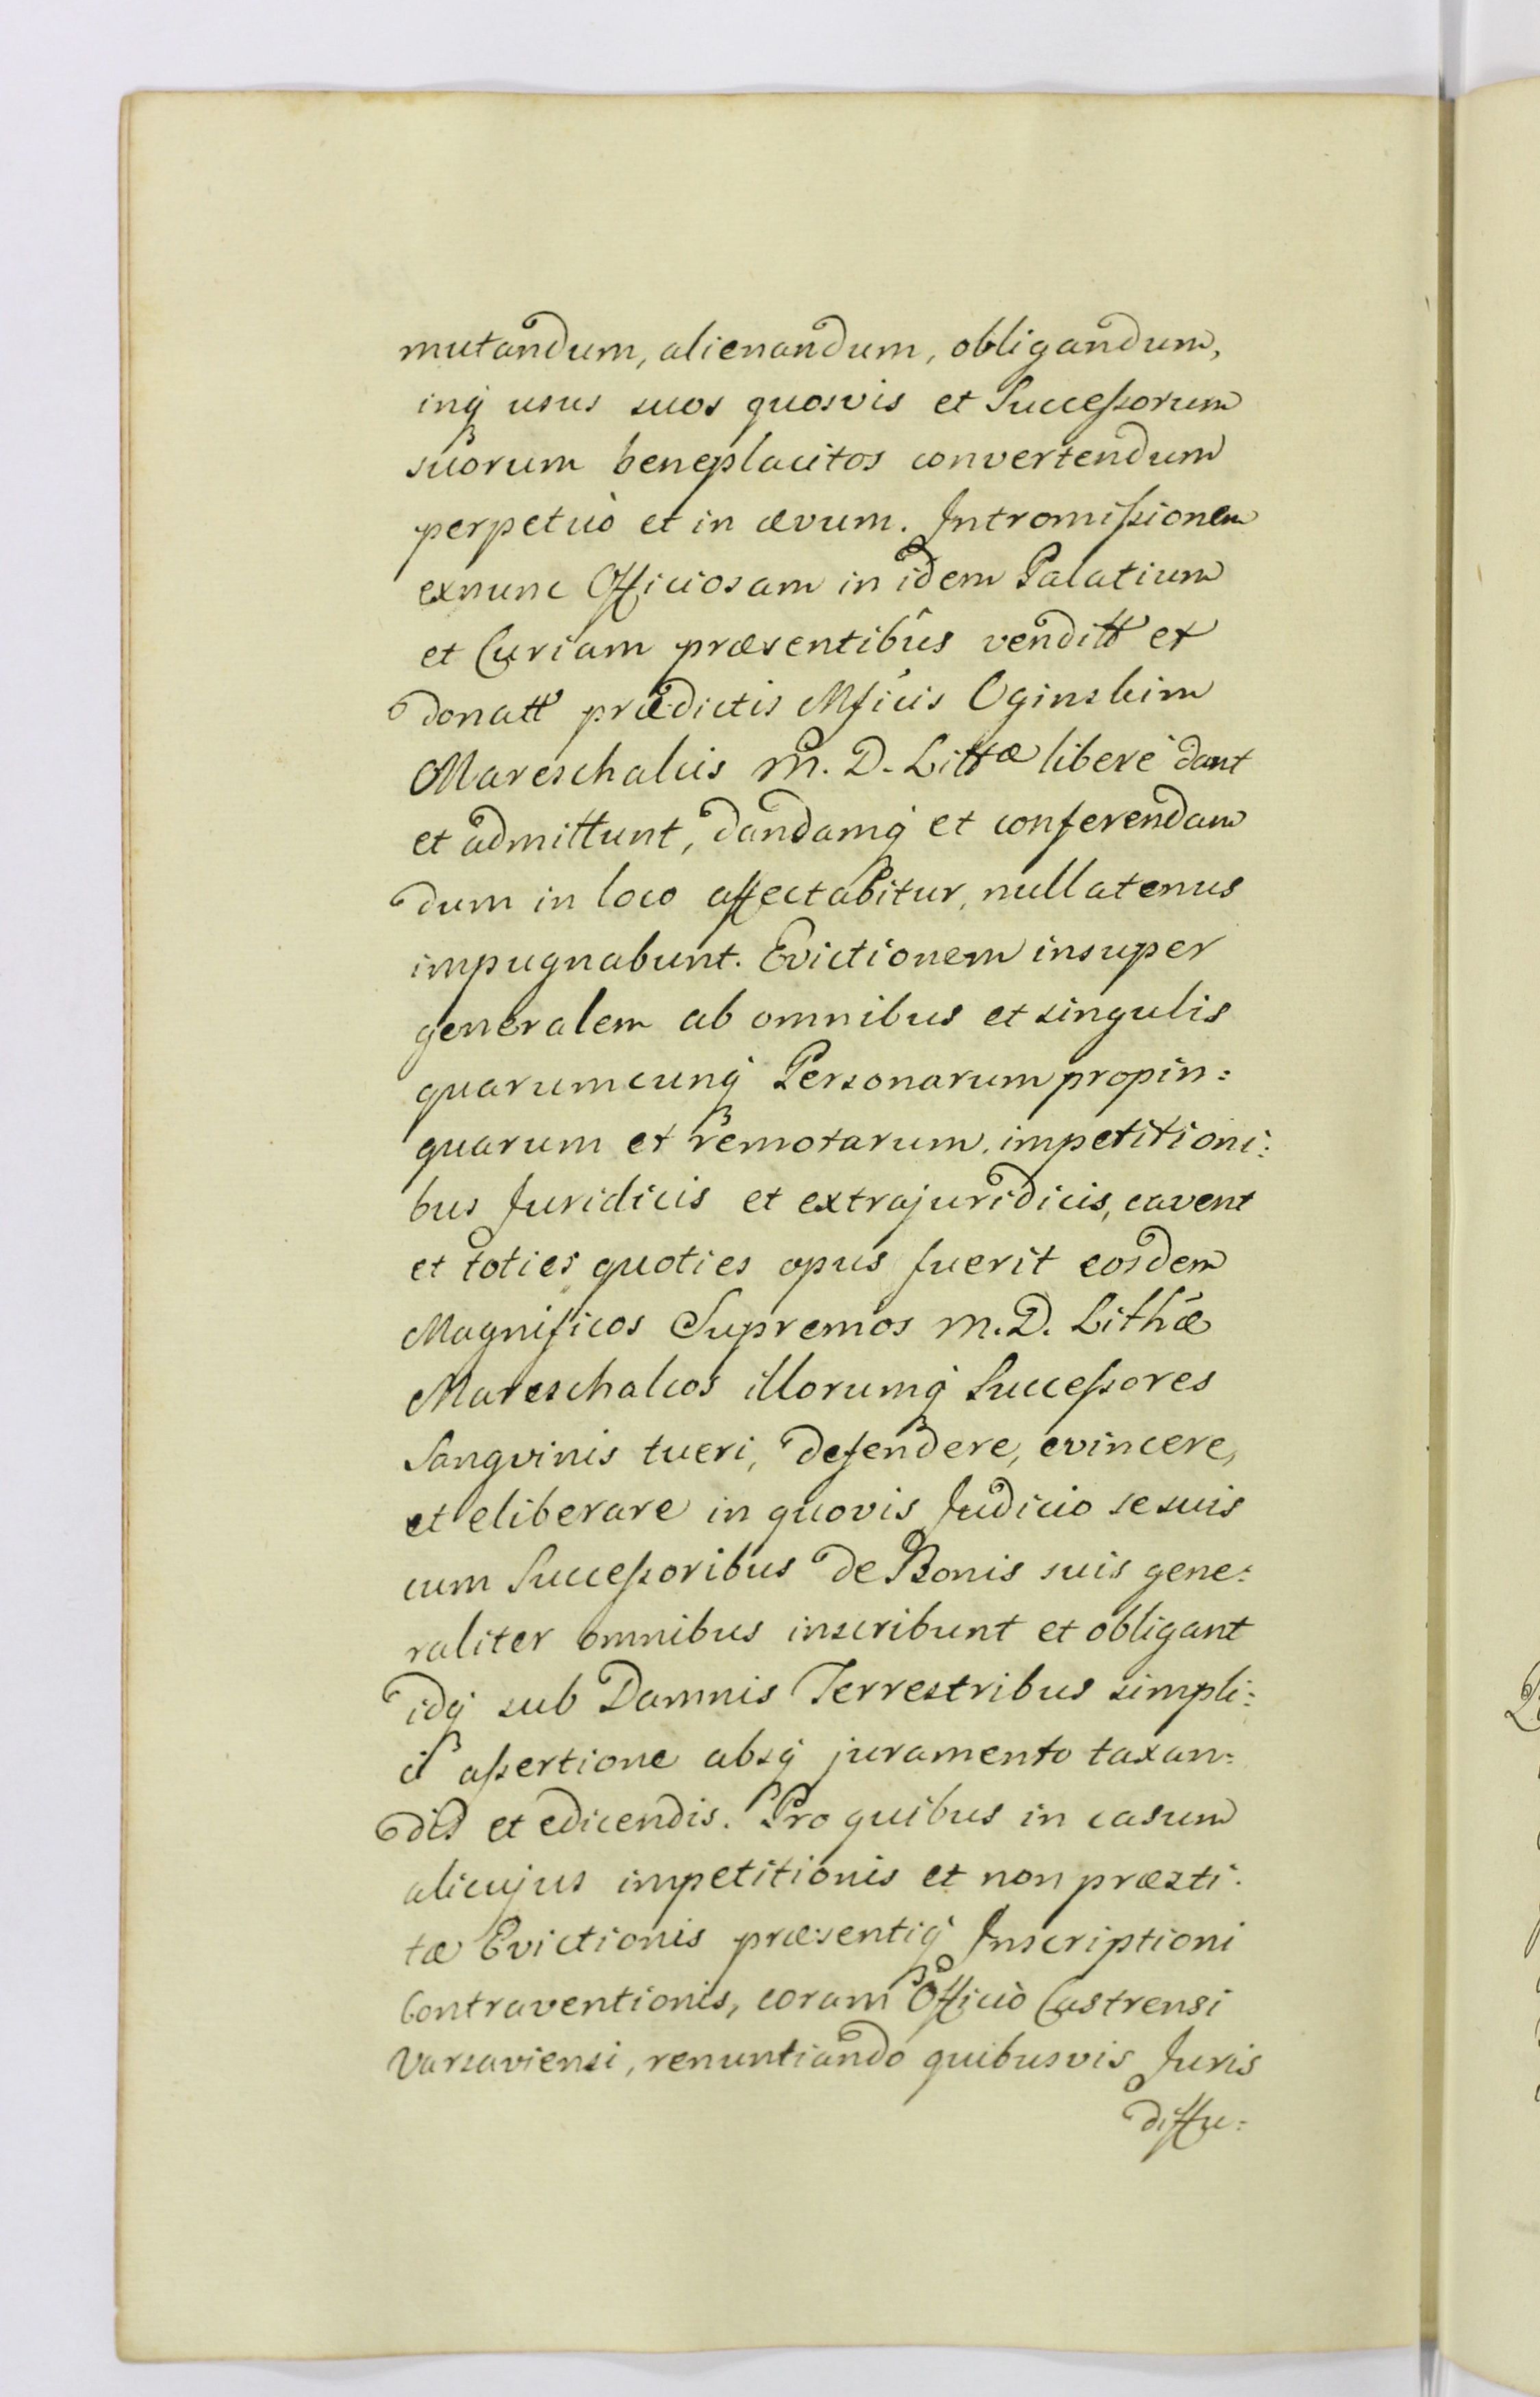 mutandum, alienandum, obligandum,
inq usus suos quosvis et Successorum
suorum beneplacitos convertendum
perpetuò et in ævum. Intromissionem
exnunc Officiosam in idem Palatium
et Curiam præsentibûs venditt et
donatt prædictis Mficis Oginskim
Mareschalcis M. D. Littæ liberè dant
et admittunt, dandamq et conferendam
dum in loco affectabitur, nullatenus
impugnabunt. Evictionem insuper
generalem ab omnibus et singulis
quarumcunq Personarum propin=
quarum et remotarum, impetitioni=
bus Juridicis et extrajuridicis, cavent
et toties quoties opus fuerit eosdem
Magnificos Supremos M. D. Lithæ
Mareschalcos illorumq Successores
Sangvinis tueri, defendere, evincere,
et eliberare in quovis Judicio se suis
cum Successoribus de Bonis suis gene=
raliter omnibus inscribunt et obligant
idq sub Damnis Terrestribus simpli=
ci assertione absq juramento taxan=
dis et edicendis. Pro quibus in casum
alicujus impetitionis et non præsti=
tæ Evictionis præsentiq Inscriptioni
Contraventionis, coram Officiò Castrensi
Varsaviensi, renuntiando quibusvis Juris
diffu=